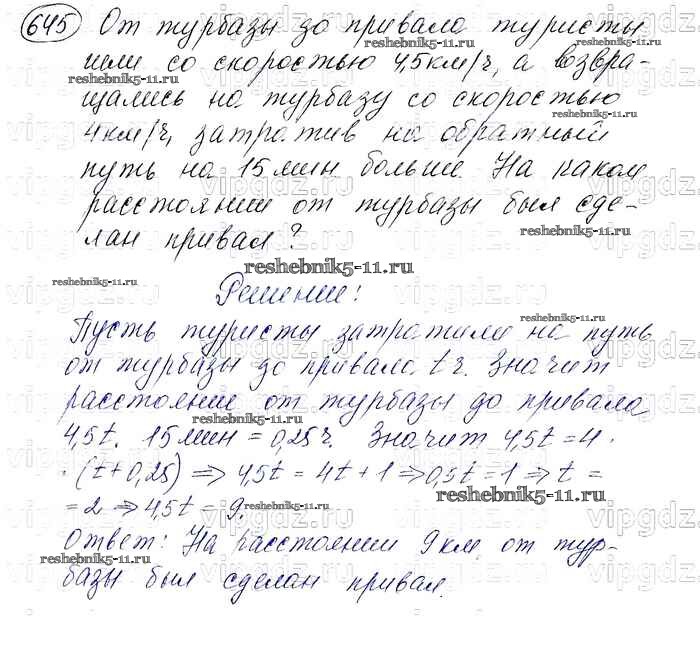 645 От турбазы до привала туристы
шли со скоростью 4,5км/ч, а возвра-
щались на турбазу со скоростью
4км/ч, затратив на обратный
путь на 15мин больше. На каком
расстоянии от турбазы был сде-
лан привал?
reshebnik5-11.ru
Решение:
Пусть туристы затратили на путь
от турбазы до привала t ч. Значит
расстояние от турбазы до привала
4,5t. 15мин = 0,25ч. Значит 4,5t = 4 ·
· (t + 0,25) ⇒ 4,5t = 4t + 1 ⇒ 0,5t = 1 ⇒ t =
= 2 ⇒ 4,5t = 9.
Ответ: На расстоянии 9км от тур-
базы был сделан привал.